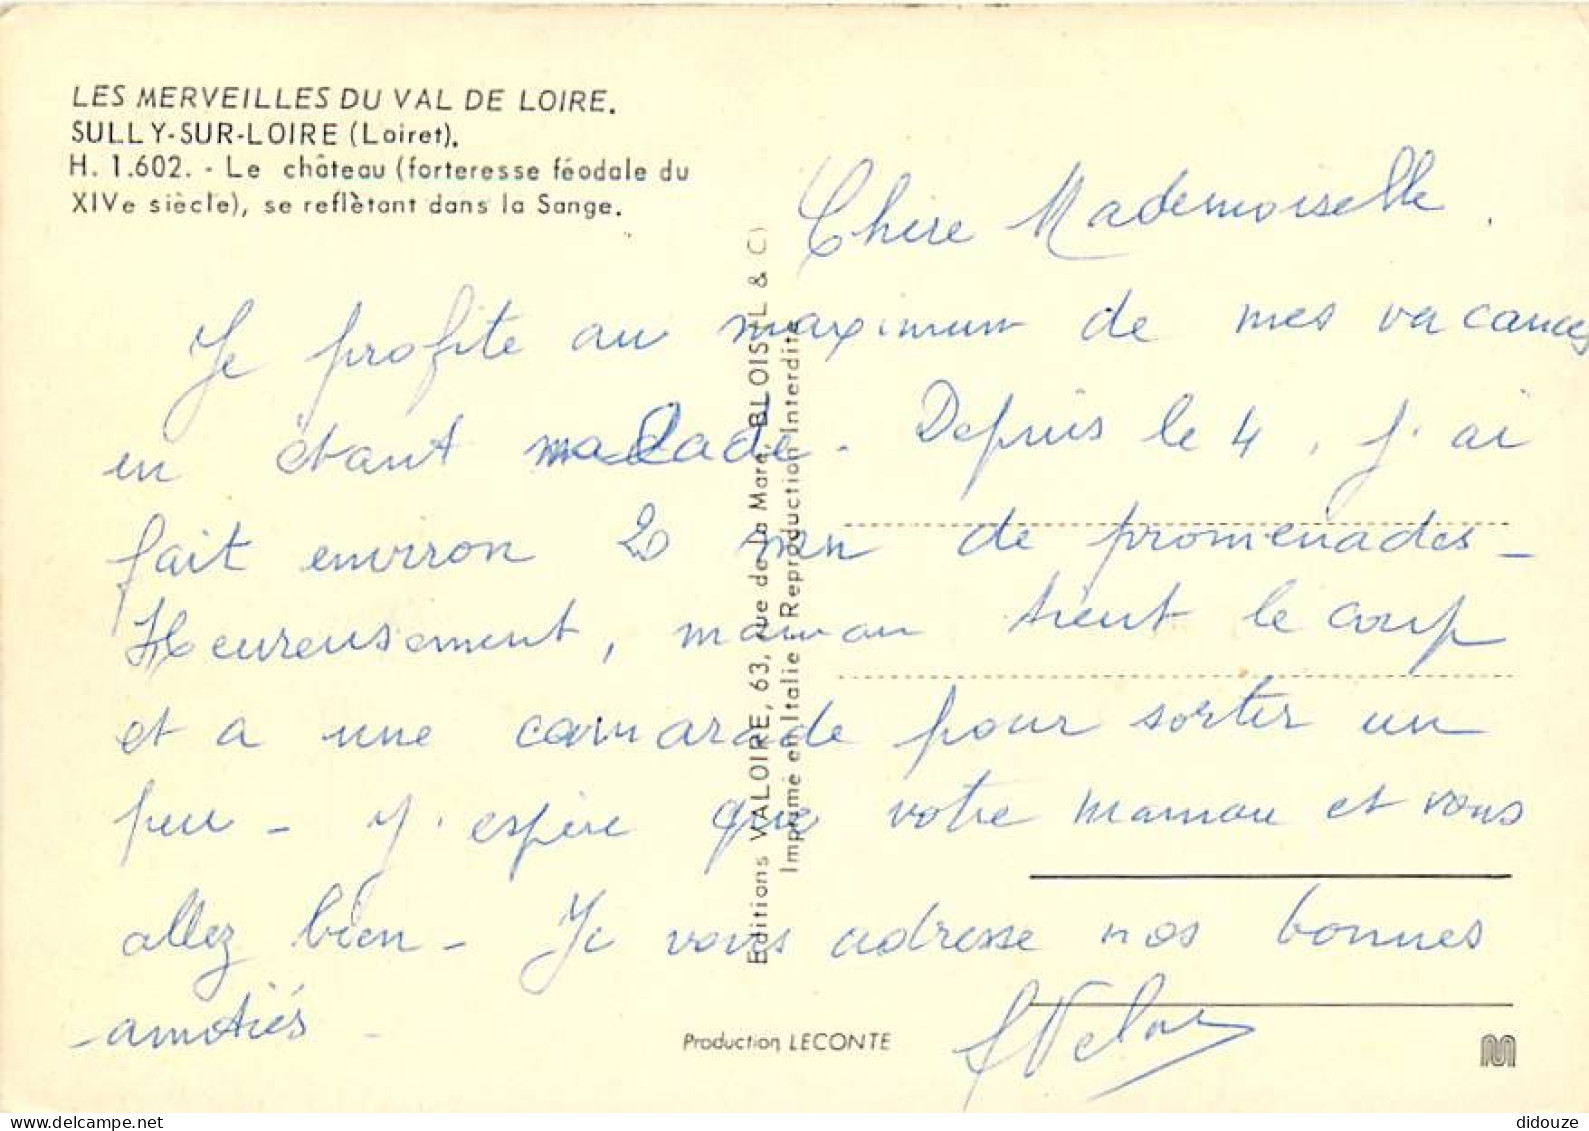 LES MERVEILLES DU VAL DE LOIRE.
SULLY-SUR-LOIRE (Loiret).
H. 1.602. - Le château (forteresse féodale du
XIVe siècle), se reflètant dans la Sange.
Chère Mademoiselle.
Je profite au maximum de mes vacances
en étant malade. Depuis le 4, j'ai
fait environ 20 mn de promenades -
Heureusement, maman tient le coup
et a une camarade pour sortir un
peu - J'espère que votre maman et vous
allez bien - Je vous adresse nos bonnes
amitiés -
Editions VALOIRE, 63, rue de la Mare, BLOIS (L & C)
Imprimé en Italie - Reproduction Interdite
Production LECONTE
delcampe.net
didouze